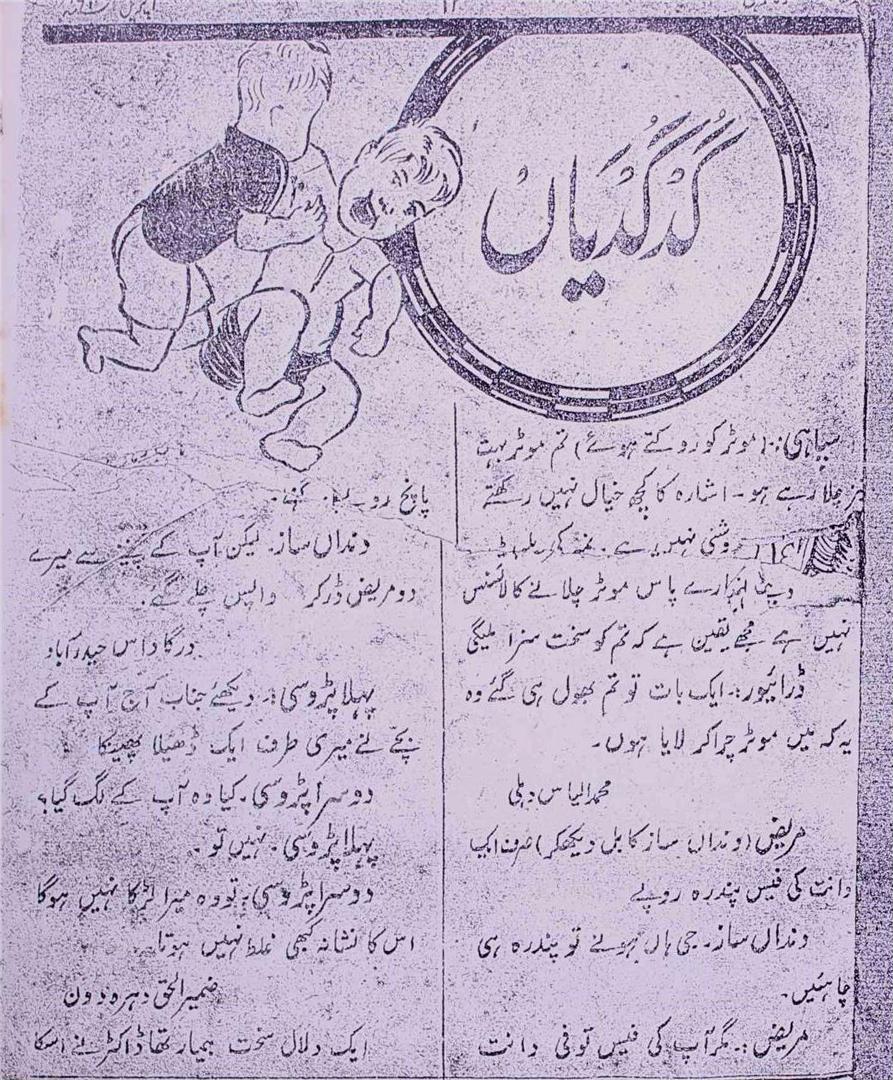 ۱۲
گُدگُدیاں
سپاہی:۔ (موٹر کو روکتے ہوئے) تم موٹر بہت
چلا رہے ہو۔ اشارہ کا کچھ خیال نہیں رکھتے
روشنی نہیں ہے۔
تمہارے پاس موٹر چلانے کا لائسنس
نہیں ہے مجھے یقین ہے کہ تم کو سخت سزا ملیگی
ڈرائیور:۔ ایک بات تو تم بھول ہی گئے وہ
یہ کہ میں موٹر چرا کر لایا ہوں۔
محمد الیاس دہلی
مریض (دنداں ساز کا بل دیکھکر) صرف ایک
دانت کی فیس پندرہ روپے
دنداں ساز۔ جی ہاں ہونے تو پندرہ ہی
چاہئیں۔
مریض:۔ مگر آپ کی فیس تو فی دانت
پانچ روپیہ
دنداں ساز۔ لیکن آپ کے چیخنے سے میرے
دو مریض ڈر کر واپس چلے گئے۔
درگا داس حیدرآباد
پہلا پڑوسی:۔ دیکھئے جناب آج آپ کے
بچے نے میری طرف ایک ڈھیلا پھینکا
دوسرا پڑوسی۔ کیا وہ آپ کے لگ گیا؟
پہلا پڑوسی۔ نہیں تو۔
دوسرا پڑوسی:۔ تو وہ میرا لڑکا نہیں ہوگا
اس کا نشانہ کبھی غلط نہیں ہوتا۔
ضمیر الحق دہرہ دون
ایک دلال سخت بیمار تھا ڈاکٹر نے اسکا